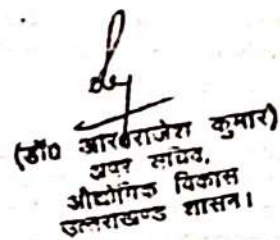 (डॉ0 आर0राजेश कुमार)
अपर सचिव,
औद्योगिक विकास
उत्तराखण्ड शासन।